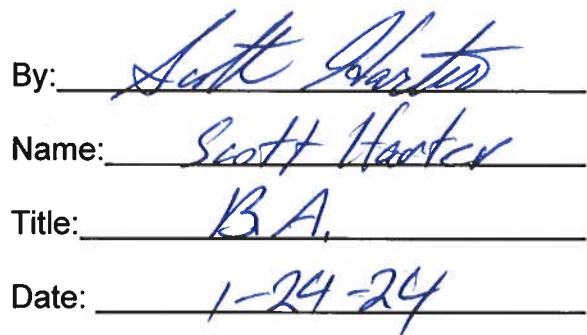 By: Scott Harter
Name: Scott Harter
Title: B.A.
Date: 1-24-24